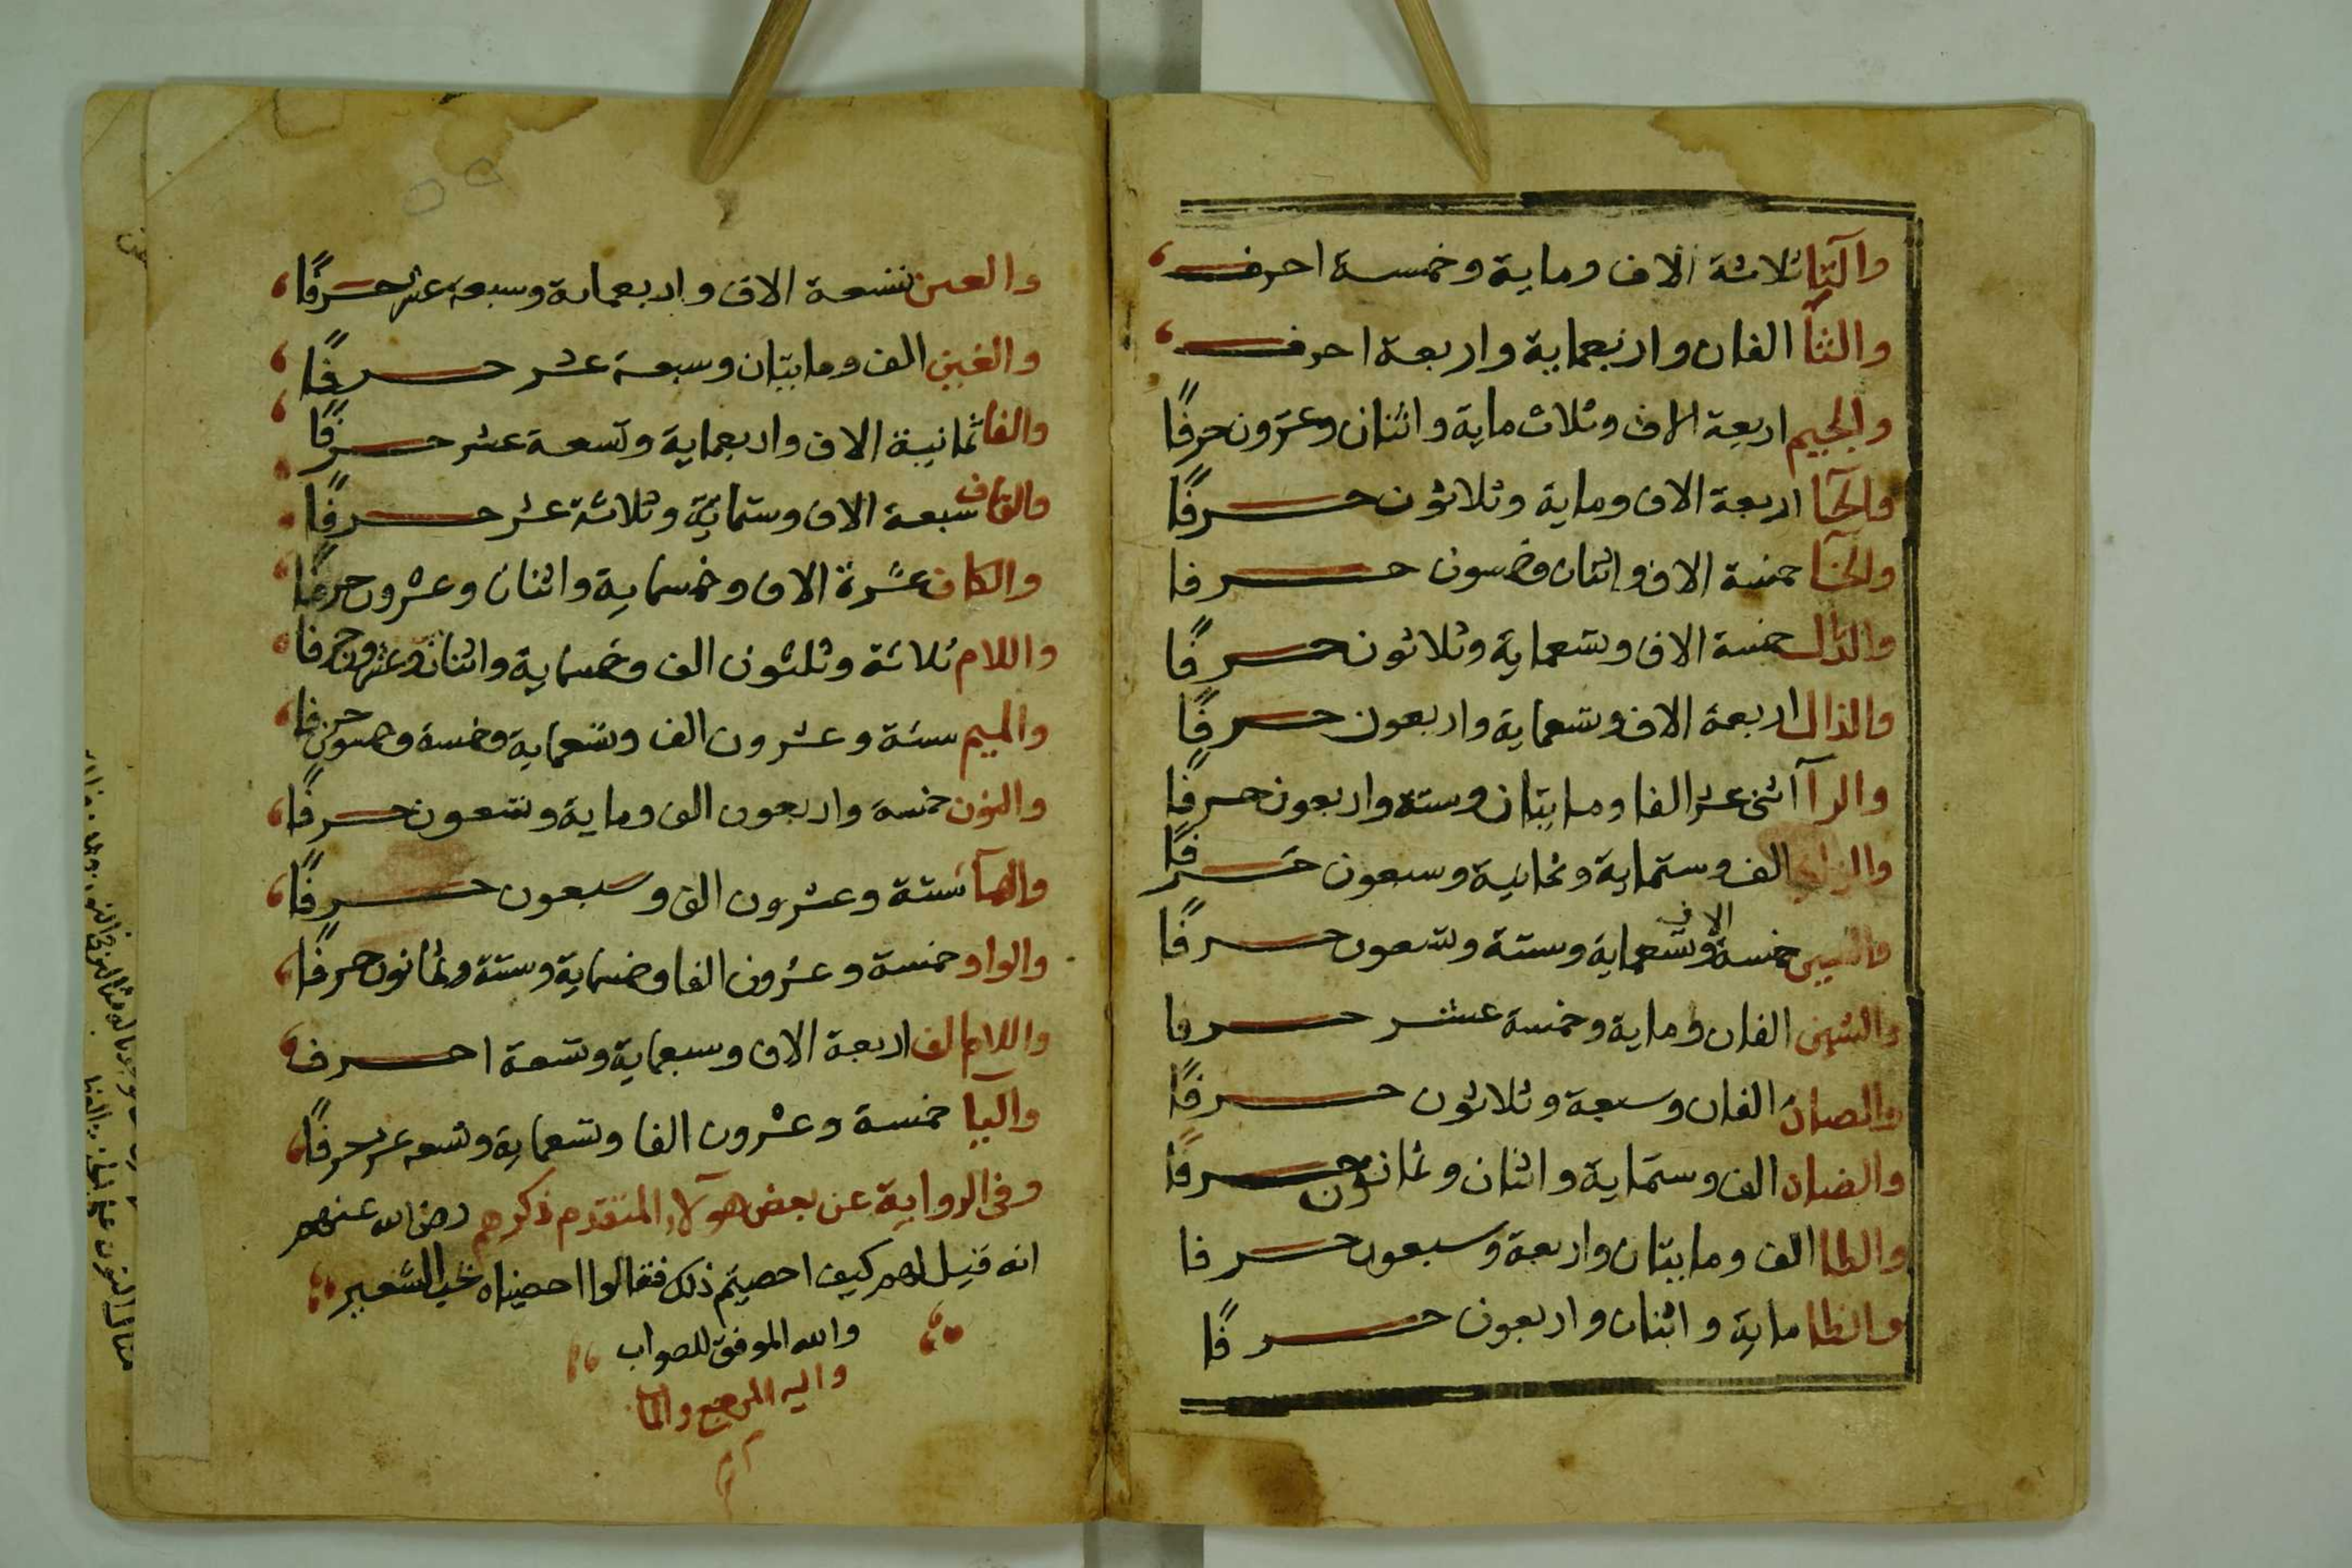 والتا ثلاثة الاف وماية وخمسة احرف
والثا الفان واربعماية واربعة احرف
والجيم اربعة الاف وثلاث ماية واثنان وعشرون حرفًا
والحا اربعة الاف وماية وثلاثون حرفًا
والخا خمسة الاف واثنان وخمسون حرفا
والدال خمسة الاف وتسعماية وثلاثون حرفًا
والذال اربعة الاف وتسعماية واربعون حرفًا
والرآ اثنى عشر الفا ومايتان وستة واربعون حرفًا
والزاى الف وستماية وثمانية وسبعون حرفًا
والسين خمسة الاف وتسعماية وستة وتسعون حرفًا
والشين الفان وماية وخمسة عشر حرفا
والصاد الفان وسبعة وثلاثون حرفًا
والضاد الف وستماية واثنان وثمانون حرفًا
والطا الف ومايتان واربعة وسبعون حرفا
والظا ماية واثنان واربعون حرفًا
والعين تسعة الاف واربعماية وسبعة عشر حرفًا
والغين الف ومايتان وسبعة عشر حرفًا
والفا ثمانية الاف واربعماية وتسعة عشر حرفًا
والقاف سبعة الاف وستماية وثلاثة عشر حرفًا
والكاف عشرة الاف وخمسماية واثنان وعشرون حرفًا
واللام ثلاثة وثلثون الف وخمسماية واثنان وعشرون حرفا
والميم ستة وعشرون الف وتسعماية وخمسة وخمسون حرفا
والنون خمسة واربعون الف وماية وتسعون حرفًا
والهآ ستة وعشرون الف وسبعون حرفًا
والواو خمسة وعشرون الفا وخمسماية وستة وثمانون حرفًا
واللام الف اربعة الاف وسبعماية وتسعة احرف
واليا خمسة وعشرون الفا وتسعماية وتسعه عشر حرفًا
وفى الرواية عن بعض هولآء المتقدم ذكرهم رضى الله عنهم
انه قيل لهم كيف احصيتم ذلك فقالوا احصيناه بحب الشعير
والله الموفق للصواب
واليه المرجع والمآ